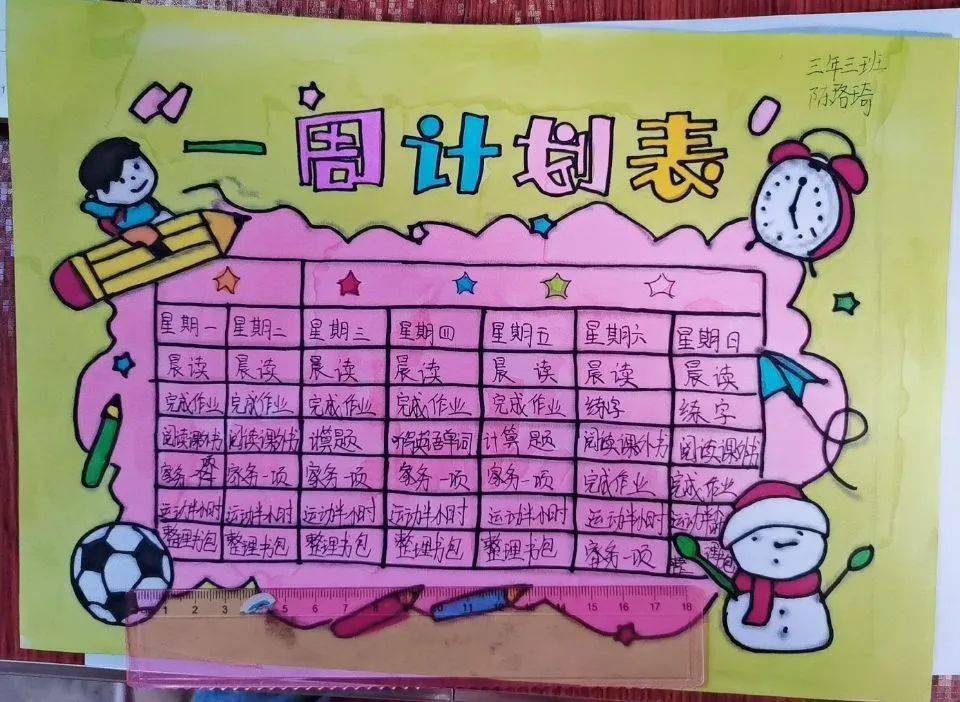 三年三班
陈珞琦
一周计划表
星期一 星期二 星期三 星期四 星期五 星期六 星期日
晨读 晨读 晨读 晨读 晨读 晨读 晨读
完成作业 完成作业 完成作业 完成作业 完成作业 练字 练字
阅读课外书 阅读课外书 计算题 听英语单词 计算题 阅读课外书 阅读课外书
家务一项 家务一项 家务一项 家务一项 家务一项 完成作业 完成作业
运动半小时 运动半小时 运动半小时 运动半小时 运动半小时 运动半小时 运动半
整理书包 整理书包 整理书包 整理书包 整理书包 家务一项 整理书包
1 2 3 5 6 7 8 10 11 12 15 16 17 18